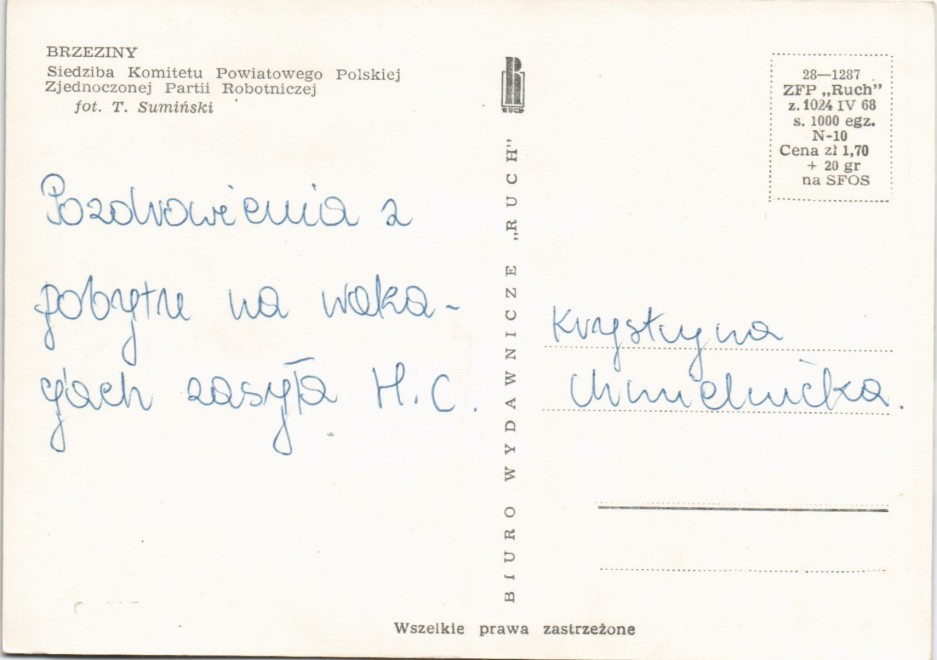 BRZEZINY
Siedziba Komitetu Powiatowego Polskiej
Zjednoczonej Partii Robotniczej
fot. T. Sumiński
Pozdrowienia z
pobytu na waka-
cjach zasyła H.C.
RUCH
BIURO WYDAWNICZE „RUCH”
28—1287
ZFP „Ruch”
z. 1024 IV 68
s. 1000 egz.
N-10
Cena zł 1,70
+ 20 gr
na SFOS
Krystyna
Chmielnicka.
Wszelkie prawa zastrzeżone